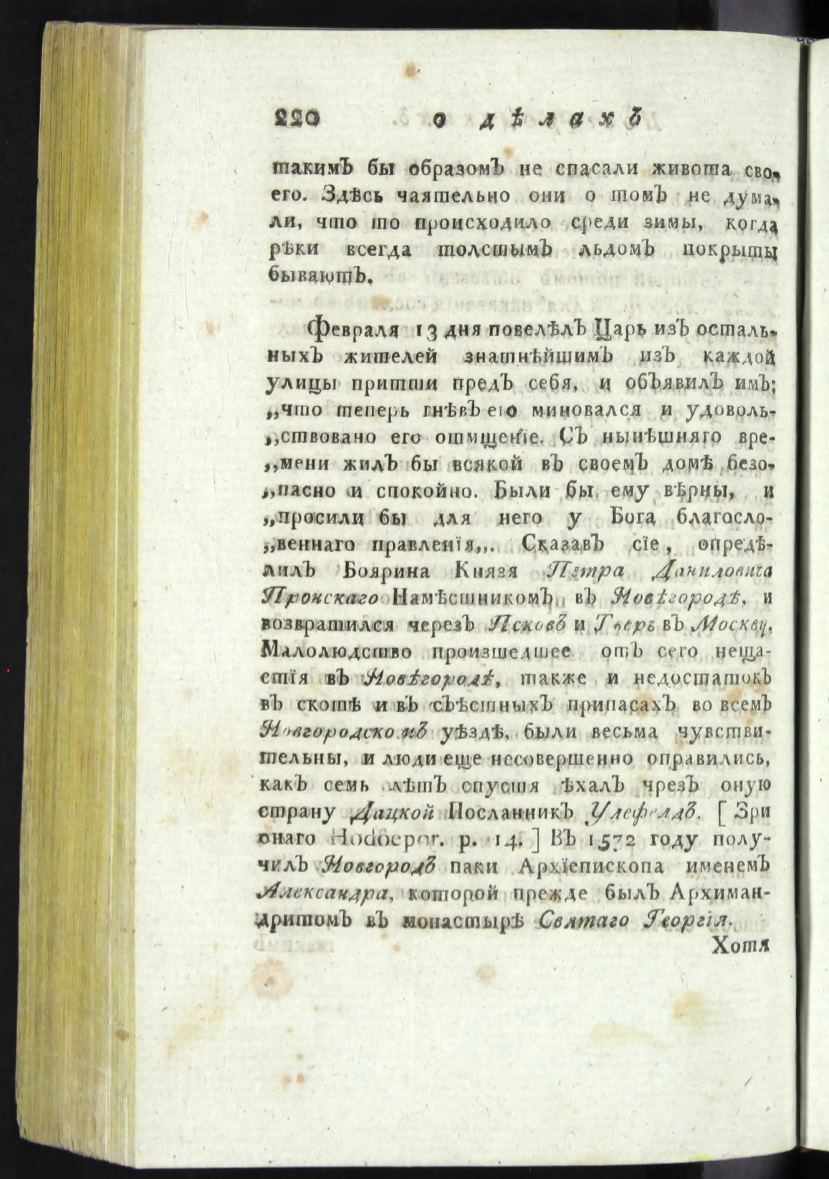 220 О дѣлахъ
такимъ бы образомъ не спасали живота сво-
его. Здѣсь чаятельно они о томъ не дума-
ли, что то происходило среди зимы, когда
рѣки всегда толстымъ льдомъ покрыты
бываютъ.
Февраля 13 дня повелѣлъ Царь изъ осталь-
ныхъ жителей знатнѣйшимъ изъ каждой
улицы притти предъ себя, и объявилъ имъ;
„что теперь гнѣвъ его миновался и удоволь-
„ствовано его отмщеніе. Съ нынѣшняго вре-
„мени жилъ бы всякой въ своемъ домѣ безо-
„пасно и спокойно. Были бы ему вѣрны, и
„просили бы для него у Бога благосло-
„веннаго правленія„. Сказавъ сіе, опредѣ-
лилъ Боярина Князя Петра Даниловича
Пронскаго Намѣстникомъ въ Новѣгородѣ, и
возвратился черезъ Псковъ и Тверь въ Москву.
Малолюдство произшедшее отъ сего неща-
стія въ Новѣгородѣ, также и недостатокъ
въ скотѣ и въ съѣстныхъ припасахъ во всемъ
Новгородскомъ уѣздѣ, были весьма чувстви-
тельны, и люди еще несовершенно оправились,
какъ семь лѣтъ спустя ѣхалъ чрезъ оную
страну Дацкой Посланникъ Улефелдъ. [ Зри
онаго Hodoepor. p. 14. ] Въ 1572 году полу-
чилъ Новгородъ паки Архіепископа именемъ
Александра, которой прежде былъ Архиман-
дритомъ въ монастырѣ Святаго Георгія.
Хотя